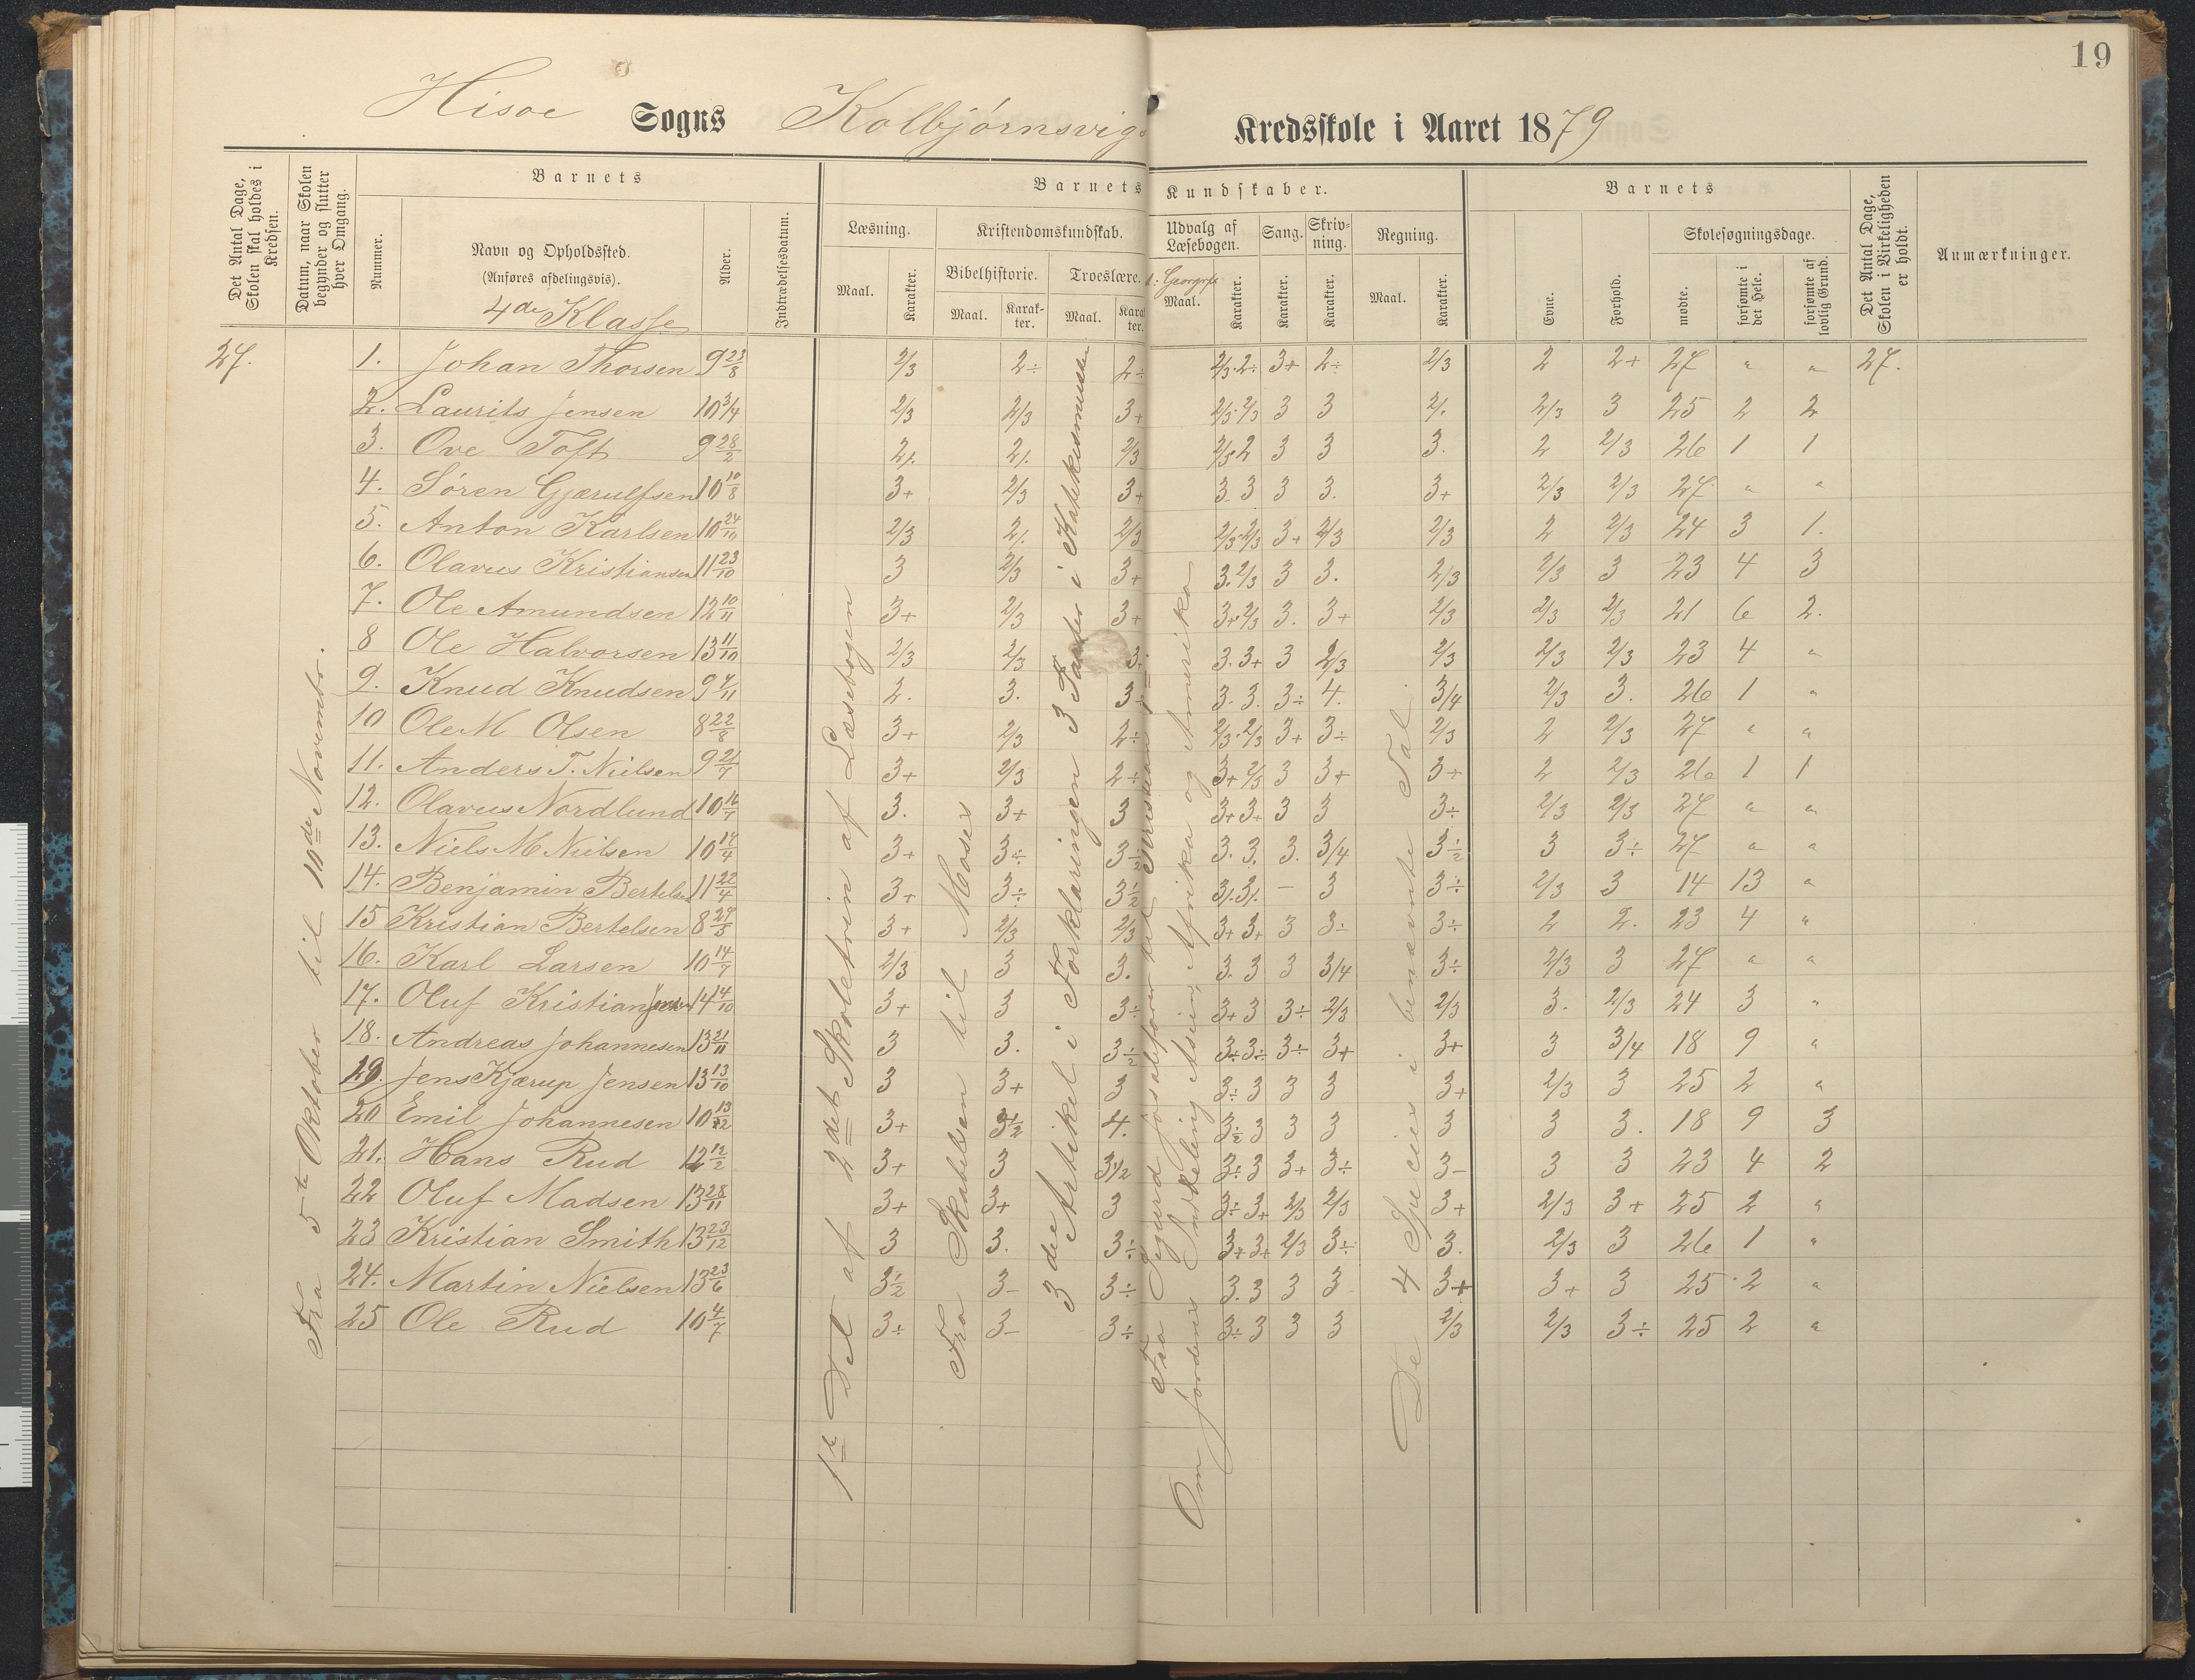 19
Hisoe Sogns Kolbjørnsvigs Kredsskole i Aaret 1879
Det Antal Dage, Skolen skal holdes i Kredsen.
Datum, naar Skolen begynder og slutter hver Omgang.
Barnets
Nummer.
Navn og Opholdssted.
(Anføres afdelingsvis).
4de Klasse
Alder.
Indtrædelsesdatum.
Barnets Kundskaber.
Læsning.
Maal.
Karakter.
Kristendomskundskab.
Bibelhistorie.
Maal.
Karakter.
Troeslære.
Maal.
Karakter.
Udvalg af Læsebogen.
Maal.
Karakter.
Sang.
Karakter.
Skrivning.
Karakter.
Regning.
Maal.
Karakter.
Barnets
Evne.
Forhold.
Skolesøgningsdage.
mødte.
forsømte i det Hele.
forsømte af lovlig Grund.
Det Antal Dage, Skolen i Virkeligheden er holdt.
Anmærkninger.
27.
Fra 5te Oktober til 10de Novembr.
1te Del af 2det Skoletrin af Læsebogen
Fra Skabelsen til Moses
3die Artikel i Forklaringen 3 Parter i Katekismusen
Fra Sigurd Jorsalefarer til
Om Jordens Inddeling Asien, Afrika og Amerika
De 4 Specier i benævnte Tal.
1. Johan Thorsen 9 23/8 2/3 2÷ 2÷ 2/3·2÷ 3+ 2÷ 2/3 2 2+ 27 " " 27.
2. Laurits Jensen 10 3/4 2/3 2/3 3+ 2/3·2/3 3 3 2/. 2/3 3 25 2 2
3. Ove Toft 9 28/2 2/. 2/. 2/3 2/3 2 3 3 3. 2 2/3 26 1 1
4. Søren Gjærulfsen 10 10/8 3+ 2/3 3+ 3. 3 3 3. 3+ 2/3 2/3 27 " "
5. Anton Karlsen 10 24/10 2/3 2/. 2/3 2/3·2/3 3+ 2/3 2/3 2 2/3 24 3 1.
6. Olavus Kristiansen 11 23/10 3 2/3 3+ 3.2/3 3 3. 2/3 2/3 3 23 4 3
7. Ole Amundsen 12 10/11 3+ 2/3 3+ 3+·2/3 3. 3+ 2/3 2/3 2/3 21 6 2.
8 Ole Halvorsen 13 11/10 2/3 2/3 3+ 3. 3+ 3 2/3 2/3 2/3 2/3 23 4 "
9. Knud Knudsen 9 4/11 2. 3. 3÷ 3. 3. 3÷ 4. 3/4 2/3 3. 26 1 "
10 Ole M Olsen 8 22/8 3+ 2/3 2÷ 2/3·2/3 3+ 3÷ 2/3 2 2/3 27 " "
11. Anders T. Nielsen 9 21/7 3+ 2/3 2÷ 3+ 2/3 3 3+ 3+ 2 2/3 26 1 1
12. Olavus Nordlund 10 16/7 3. 3+ 3 3+ 3+ 3 3 3÷ 2/3 2/3 27 " "
13. Niels M Nielsen 10 14/4 3+ 3÷ 3½ 3. 3. 3. 3/4 3½ 3 3÷ 27 " "
14. Benjamin Bertelsen 11 22/4 3+ 3÷ 3½ 3/. 3/. — 3 3÷ 2/3 3 14 13 "
15 Kristian Bertelsen 8 29/5 3+ 2/3 2/3 3+ 3+ 3 3÷ 3÷ 2 2. 23 4 "
16. Karl Larsen 10 14/7 2/3 3 3. 3. 3 3 3/4 3÷ 2/3 3 27 " "
17. Oluf Kristian Jensen 14 4/10 3+ 3 3÷ 3+ 3 3÷ 2/3 2/3 3. 2/3 24 3 "
18. Andreas Johannesen 13 21/11 3 3. 3½ 3÷ 3÷ 3÷ 3+ 3+ 3 3/4 18 9 "
19. Jens Kjærup Jensen 13 13/10 3 3+ 3 3÷ 3 3 3 3+ 2/3 3 25 2 "
20 Emil Johannesen 10 13/12 3+ 3½ 4. 3½ 3 3 3 3 3 3. 18 9 3
21. Hans Rud 12 12/2 3+ 3 3½ 3÷ 3 3+ 3÷ 3- 3 3 23 4 2
22 Oluf Madsen 13 28/11 3+ 3+ 3 3÷ 3+ 2/3 2/3 3+ 2/3 3+ 25 2 "
23 Kristian Smith 13 23/12 3 3. 3÷ 3+ 3+ 2/3 3÷ 3. 2/3 3 26 1 "
24. Martin Nielsen 13 23/6 3½ 3- 3÷ 3. 3 3 3 3+ 3+ 3 25 2 "
25 Ole Rud 10 4/7 3÷ 3- 3÷ 3÷ 3 3 3 2/3 2/3 3÷ 25 2 "